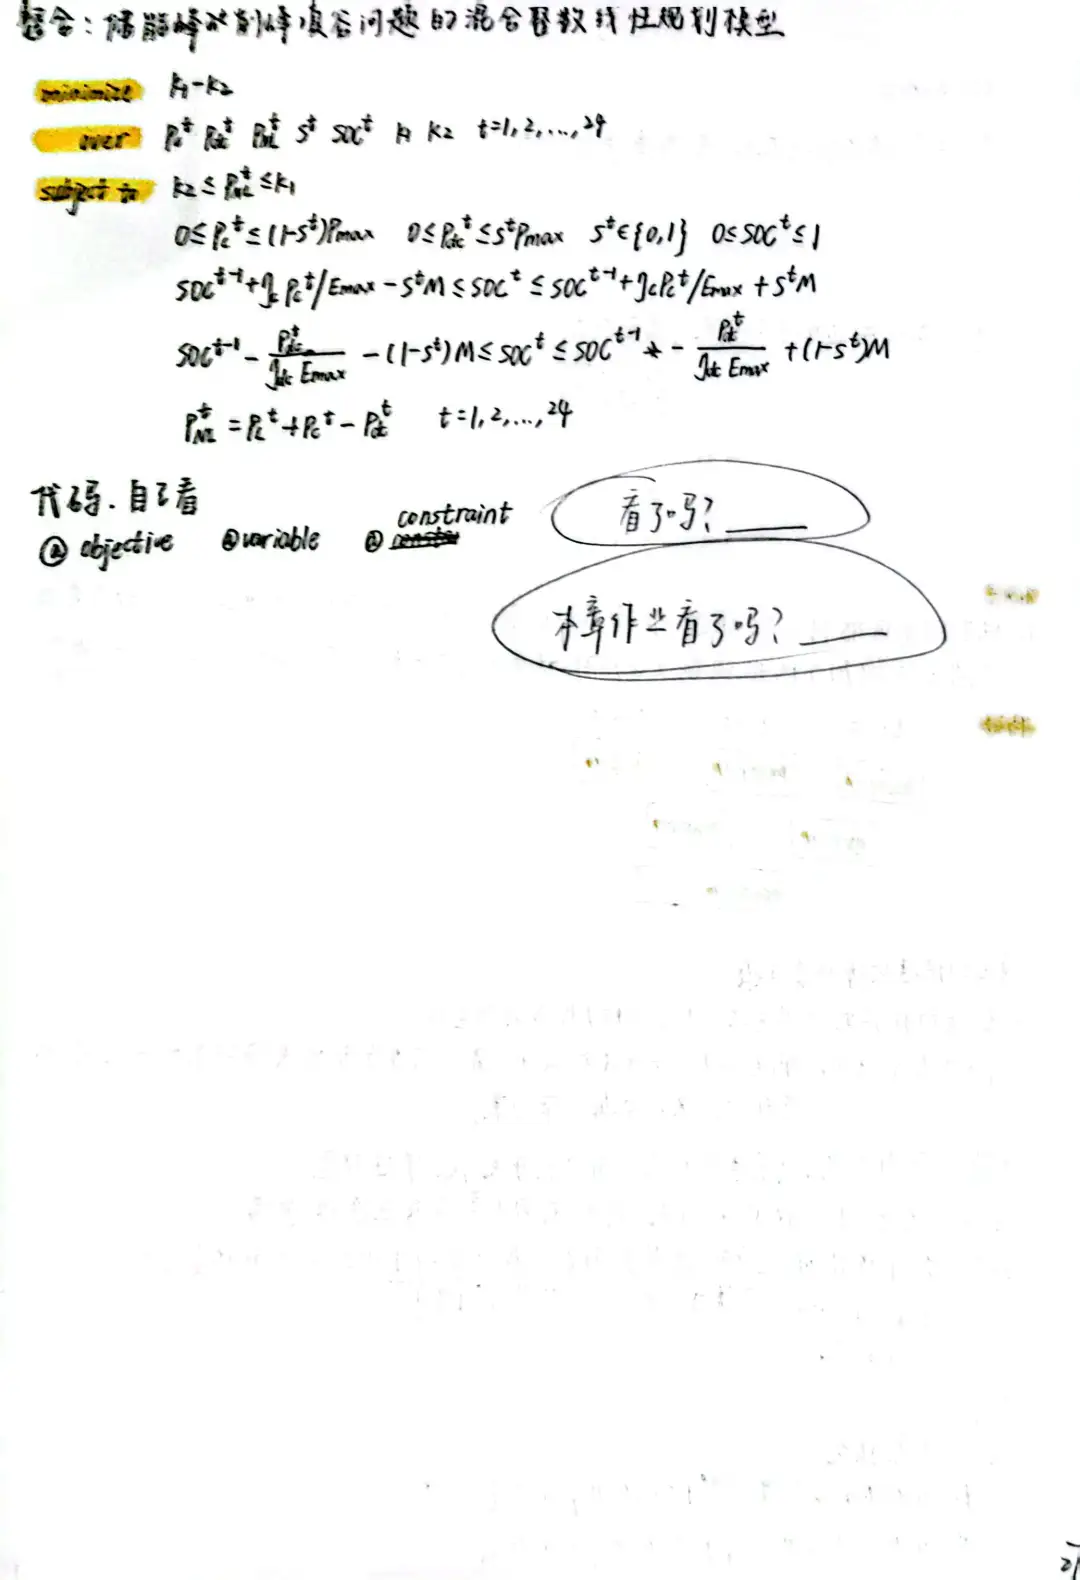 整合：储能峰对削峰填谷问题的混合整数线性规划模型
minimize k1-k2
over Pc^t Pdc^t PNL^t S^t SOC^t k1 k2 t=1,2,...,24
subject to k2≤PNL^t≤k1
0≤Pc^t≤(1-S^t)Pmax 0≤Pdc^t≤S^tPmax S^t∈{0,1} 0≤SOC^t≤1
SOC^t-1+ηcPc^t/Emax-S^tM≤SOC^t≤SOC^t-1+ηcPc^t/Emax+S^tM
SOC^t-1-Pdc^t/(ηdcEmax)-(1-S^t)M≤SOC^t≤SOC^t-1-Pdc^t/(ηdcEmax)+(1-S^t)M
PNL^t=PL^t+Pc^t-Pdc^t t=1,2,...,24
代码.自己看
① objective ② variable ③ constraint
看了吗?____
本章作业看了吗?____